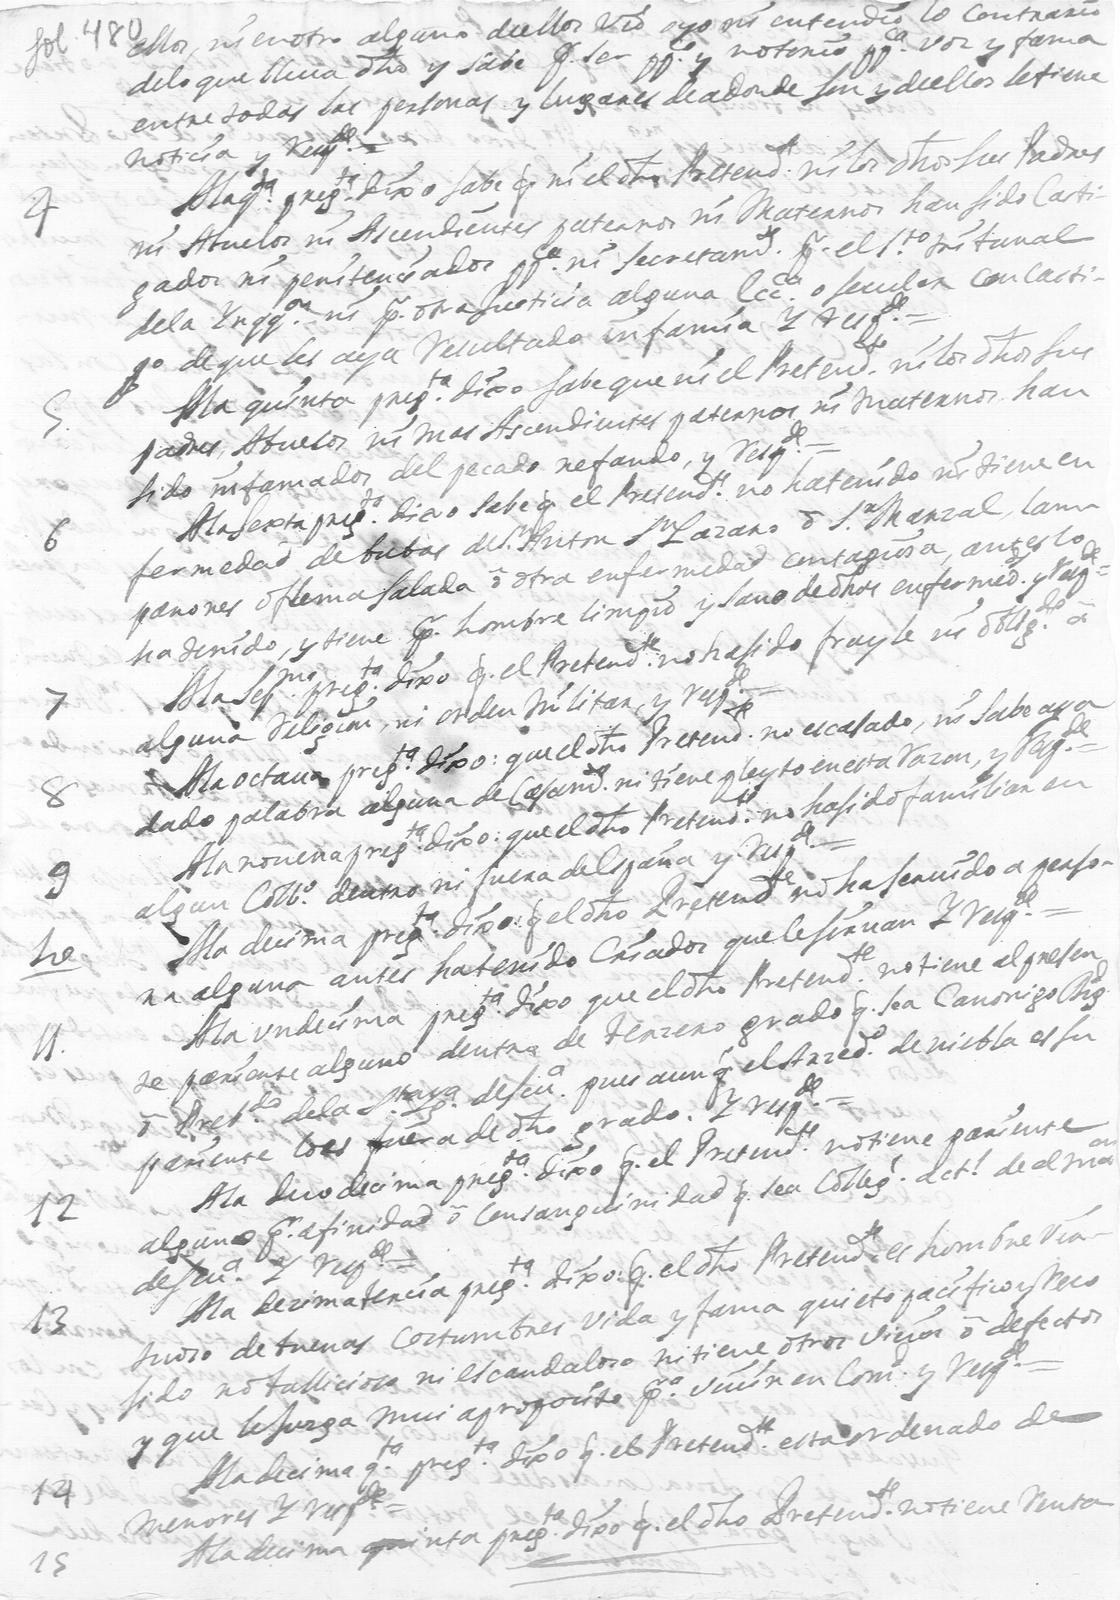 fol. 480
ellos, ni en otro alguno de ellos vio oyo ni entendio lo contrario
delo que lleva dho y sabe p.r ser pp.co y notorio pp.ca voz y fama
entre todas las personas y lugares de adonde son y de ellos se tiene
noticia y resp.de =
4 Ala q.ta preg.ta dixo sabe q. ni el dho Pretend.te ni los dhos sus Padres
ni Abuelos ni Ascendientes paternos ni Maternos han sido Casti-
gados ni penitenciados pp.ca ni secretam.te p.r el S.to tribunal
dela Ynqq.on ni p.r otra Justicia alguna Ecc.ca o secular con casti-
go de que les aya Resultado infamia Y resp.de =
5. Ala quinta preg.ta dixo sabe que ni el Pretend.te ni los dhos sus
padres, Abuelos ni mas Ascendientes paternos ni Maternos han
sido infamados del pecado nefando, y resp.de =
6 Ala sexta preg.ta dixo sabe q. el Pretend.te no ha tenido ni tiene en
fermedad de bubas de S. Anton S.n Lazaro ô S.n Marzal, lam
parones o flema salada ô otra enfermedad contagiosa, antes lo
ha tenido, y tiene p.r hombre limpio y sano de dhas enfermed.s y resp.de =
7 Ala sep.ma preg.ta dixo q. el Pretend.te no ha sido frayle ni oblig.do â
alguna Religion, ni orden Militar, y resp.de =
8 Ala octava preg.ta dixo: que el dho Pretend.te no es casado, ni sabe aya
dado palabra alguna de Casam.to ni tiene pleyto en esta razon, y resp.de =
9 Ala novena preg.ta dixo: que el dho Pretend.te no ha sido familiar en
algun Coll.o dentro ni fuera de España y resp.de =
10 Ala decima preg.ta dixo: q. el dho Pretend.te no ha servido a perso-
na alguna antes ha tenido Criados que le sirvan Y resp.de =
11. Ala undecima preg.ta dixo que el dho Pretend.te no tiene al presen
te pariente alguno dentro de terzero grado q. sea Canonigo
ô Preb.do dela S.ta Yg.a de seu.a pues aunq. el Arzed.o de niebla es su
pariente lo es fuera de dho grado. Y resp.de =
12 Ala duodecima preg.ta dixo q. el Pretend.te no tiene pariente
alguno p.r afinidad ô Consanguinidad q. sea Colleg.l act.l de el m.or
de seu.a Y resp.de =
13 Ala dezima tercia preg.ta dixo: q. el dho Pretend.te es hombre vir-
tuoso de buenas Costumbres vida y fama quieto pacifico y
sido no bullicioso ni escandaloso ni tiene otros vicios ô defectos
y que le juzga mui aproposito p.a vivir en Com.d y resp.de =
14 Ala decima q.ta preg.ta dixo q. el Pretend.te esta ordenado de
Menores Y resp.de =
15 Ala decima quinta preg.ta dixo q. el dho Pretend.te no tiene Renta